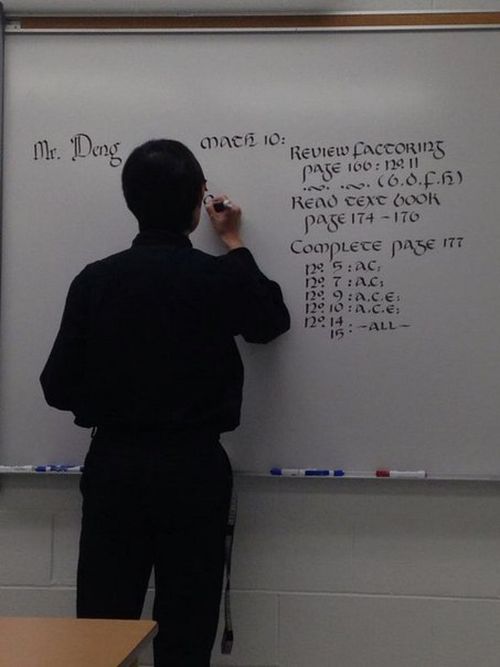 Mr. Deng
Math 10:
Review Factoring
page 166: no. 11
(b.d.f.h)
Read text book
page 174 - 176
Complete page 177
no. 5: a.c;
no. 7: a.c;
no. 9: a.c.e;
no. 10: a.c.e;
no. 14
15: -all-